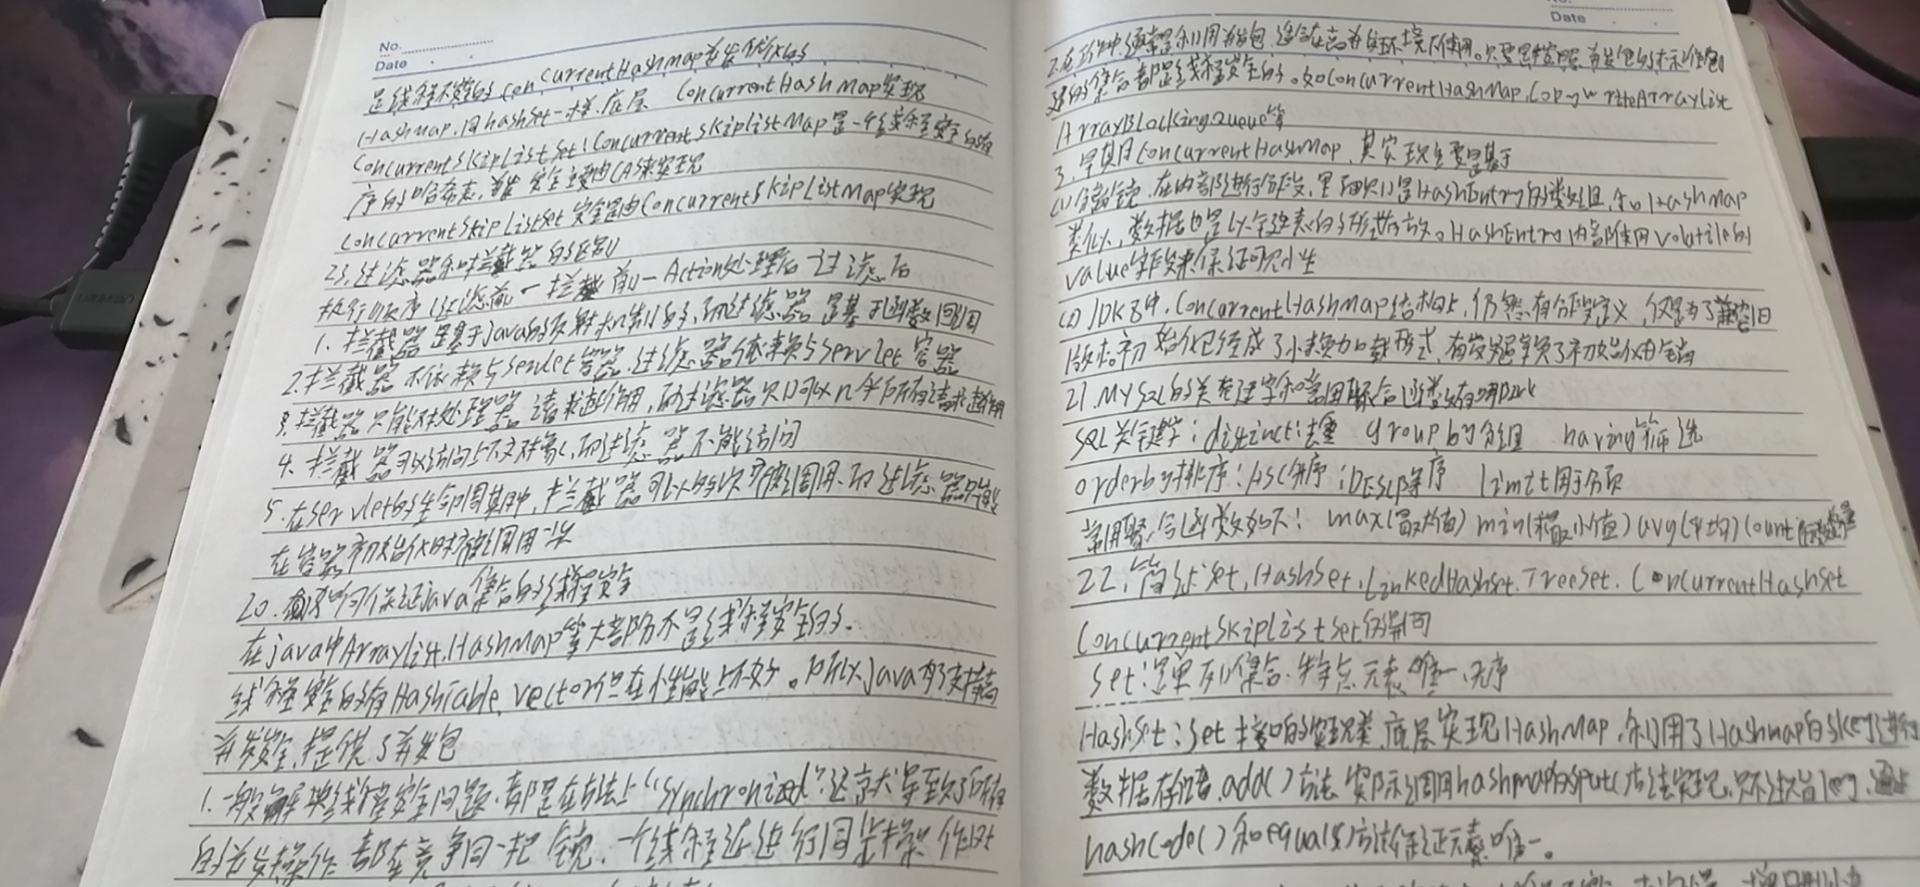 No.
Date
是线程不安全的 ConcurrentHashMap
HashMap, 因hashSet一样, 底层 ConcurrentHashMap实现
ConcurrentSkipListSet: ConcurrentSkipListMap是一个线程安全的
序的哈希表, 安全主要由CAS来实现
ConcurrentSkipListSet 安全是由ConcurrentSkipListMap实现
23.过滤器和拦截器的区别
执行顺序: 过滤前一拦截前一Action处理后一过滤后
1. 拦截器是基于java的反射机制的, 而过滤器是基于函数回调
2.拦截器不依赖与servlet容器, 过滤器依赖与servlet容器
3.拦截器只能对处理器请求起作用, 而过滤器只可以几乎所有请求起作用
4. 拦截器可以访问上下文对象, 而过滤器不能访问
5.在servlet的生命周期中, 拦截器可以多次被调用, 而过滤器只能
在容器初始化时被调用一次
20. 如何保证java集合的线程安全
在java中ArrayList, HashMap等大部分不是线程安全的.
线程安全的有HashTable, vector但在性能上不好。所以java为了支持高
并发安全, 提供了并发包
1.一般解决线程安全问题, 都是在方法上“synchronized”, 这就导致了所有
的并发操作都在竞争同一把锁, 一个线程在进行同步操作时
No.
Date
2.在 中通常是利用并发包, 适合在高并发环境下使用。只要是
的集合都是线程安全的。如ConcurrentHashMap, CopyOnWriteArrayList
ArrayBlockingQueue等
3. 早期ConcurrentHashMap, 其实现主要是基于
(1)分离锁, 在内部进行分段, 里面则是HashEntry的数组, 和HashMap
类似, 数据也是以链表的形式存放。HashEntry内部使用volatile的
value字段来保证可见性
(2) JDK8中, ConcurrentHashMap结构上, 仍然有分段定义, 仅是为了兼容旧
版本.初始化已经成了 加载形式, 有效避免了初始化开销
21.MySQL的关键字和常用聚合函数有哪些
SQL关键字: distinct:去重 group by分组 having筛选
orderby排序: ASC升序; DESC降序 limit用于分页
常用聚合函数如下: max(最大值) min(最小值) avg(平均) count
22.简述Set, HashSet, LinkedHashset, TreeSet, ConcurrentHashset
ConcurrentSkipListSet的异同
Set:是单列集合, 特点元素唯一,无序
HashSet: Set接口的实现类, 底层实现HashMap, 利用了Hashmap的key进行
数据存储. add()方法实际调用hashmap的put()方法实现, 只不过 key, 通过
hashCode()和equals()方法保证元素唯一。